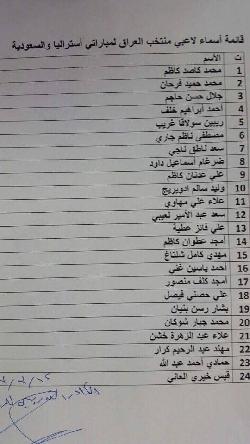 قائمة أسماء لاعبي منتخب العراق لمباراتي أستراليا والسعودية
ت الأسم
1 محمد كاصد كاظم
2 محمد حميد فرحان
3 جلال حسن حاجم
4 احمد ابراهيم خلف
5 ريبين سولاقا غريب
6 مصطفى ناظم جاري
7 سعد ناطق ناجي
8 ضرغام اسماعيل داود
9 علي عدنان كاظم
10 وليد سالم
11 علاء علي مهاوي
12 سعد عبد الأمير لعيبي
13 علي فائز عطية
14 أمجد عطوان كاظم
15 مهدي كامل شلتاغ
16 احمد ياسين غني
17 أمجد كلف منصور
18 علي حصني فيصل
19 بشار رسن بنيان
20 محمد جبار شوكان
21 علاء عبد الزهرة خشن
22 مهند عبد الرحيم كرار
23 حمادي أحمد عبد الله
24 قيس خيري العاني